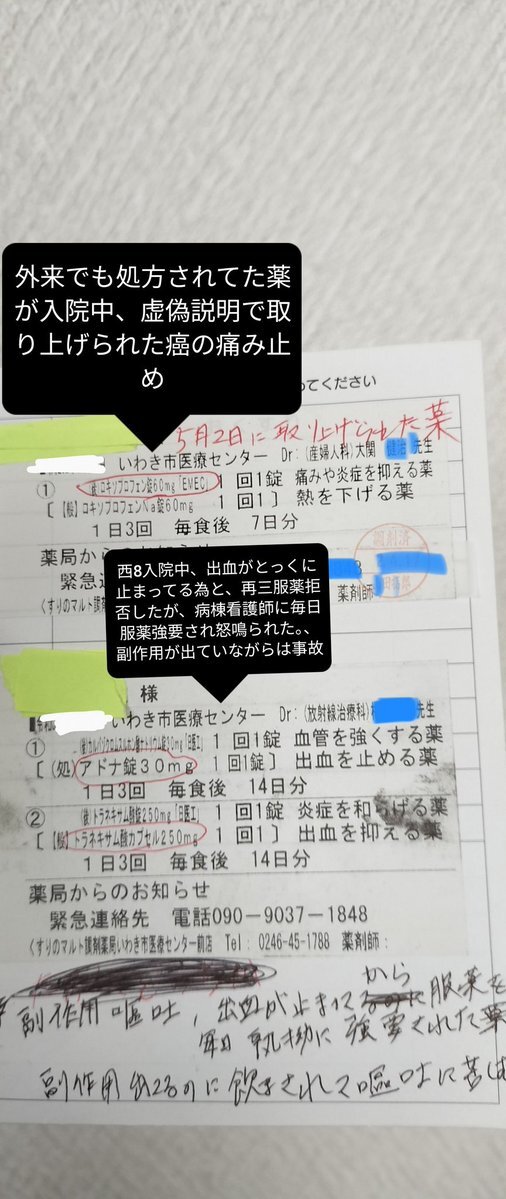 外来でも処方されてた薬
が入院中、虚偽説明で取
り上げられた癌の痛み止
め
ってください
5月2日に取り上げられた薬
いわき市医療センター Dr:(産婦人科)大関 先生
① (後)ロキソプロフェン錠60mg「EMEC」 1回1錠 痛みや炎症を抑える薬
[【般】ロキソプロフェンNa錠60mg 1回1] 熱を下げる薬
1日3回 毎食後 7日分
調剤済
薬局から
緊急
くすりのマルト調剤 薬剤師
西8入院中、出血がとっくに
止まってる為と、再三服薬拒
否したが、病棟看護師に毎日
服薬強要され怒鳴られた。、
副作用が出ていながらは事故
様
いわき市医療センター Dr:(放射線治療科) 先生
① (後)カルバゾクロムスルホン酸ナトリウム錠30mg「日医工」 1回1錠 血管を強くする薬
[(処)アドナ錠30mg 1回1錠] 出血を止める薬
1日3回 毎食後 14日分
② (後)トラネキサム酸錠250mg「日医工」 1回1錠 炎症を和らげる薬
[【般】トラネキサム酸カプセル250mg 1回1] 出血を抑える薬
1日3回 毎食後 14日分
薬局からのお知らせ
緊急連絡先 電話090-9037-1848
くすりのマルト調剤薬局いわき市医療センター前店 Tel: 0246-45-1788 薬剤師:
副作用 嘔吐, 出血が止まってるから服薬を
毎日 執拗に強要された薬
副作用出てるのに飲まされて嘔吐に苦し